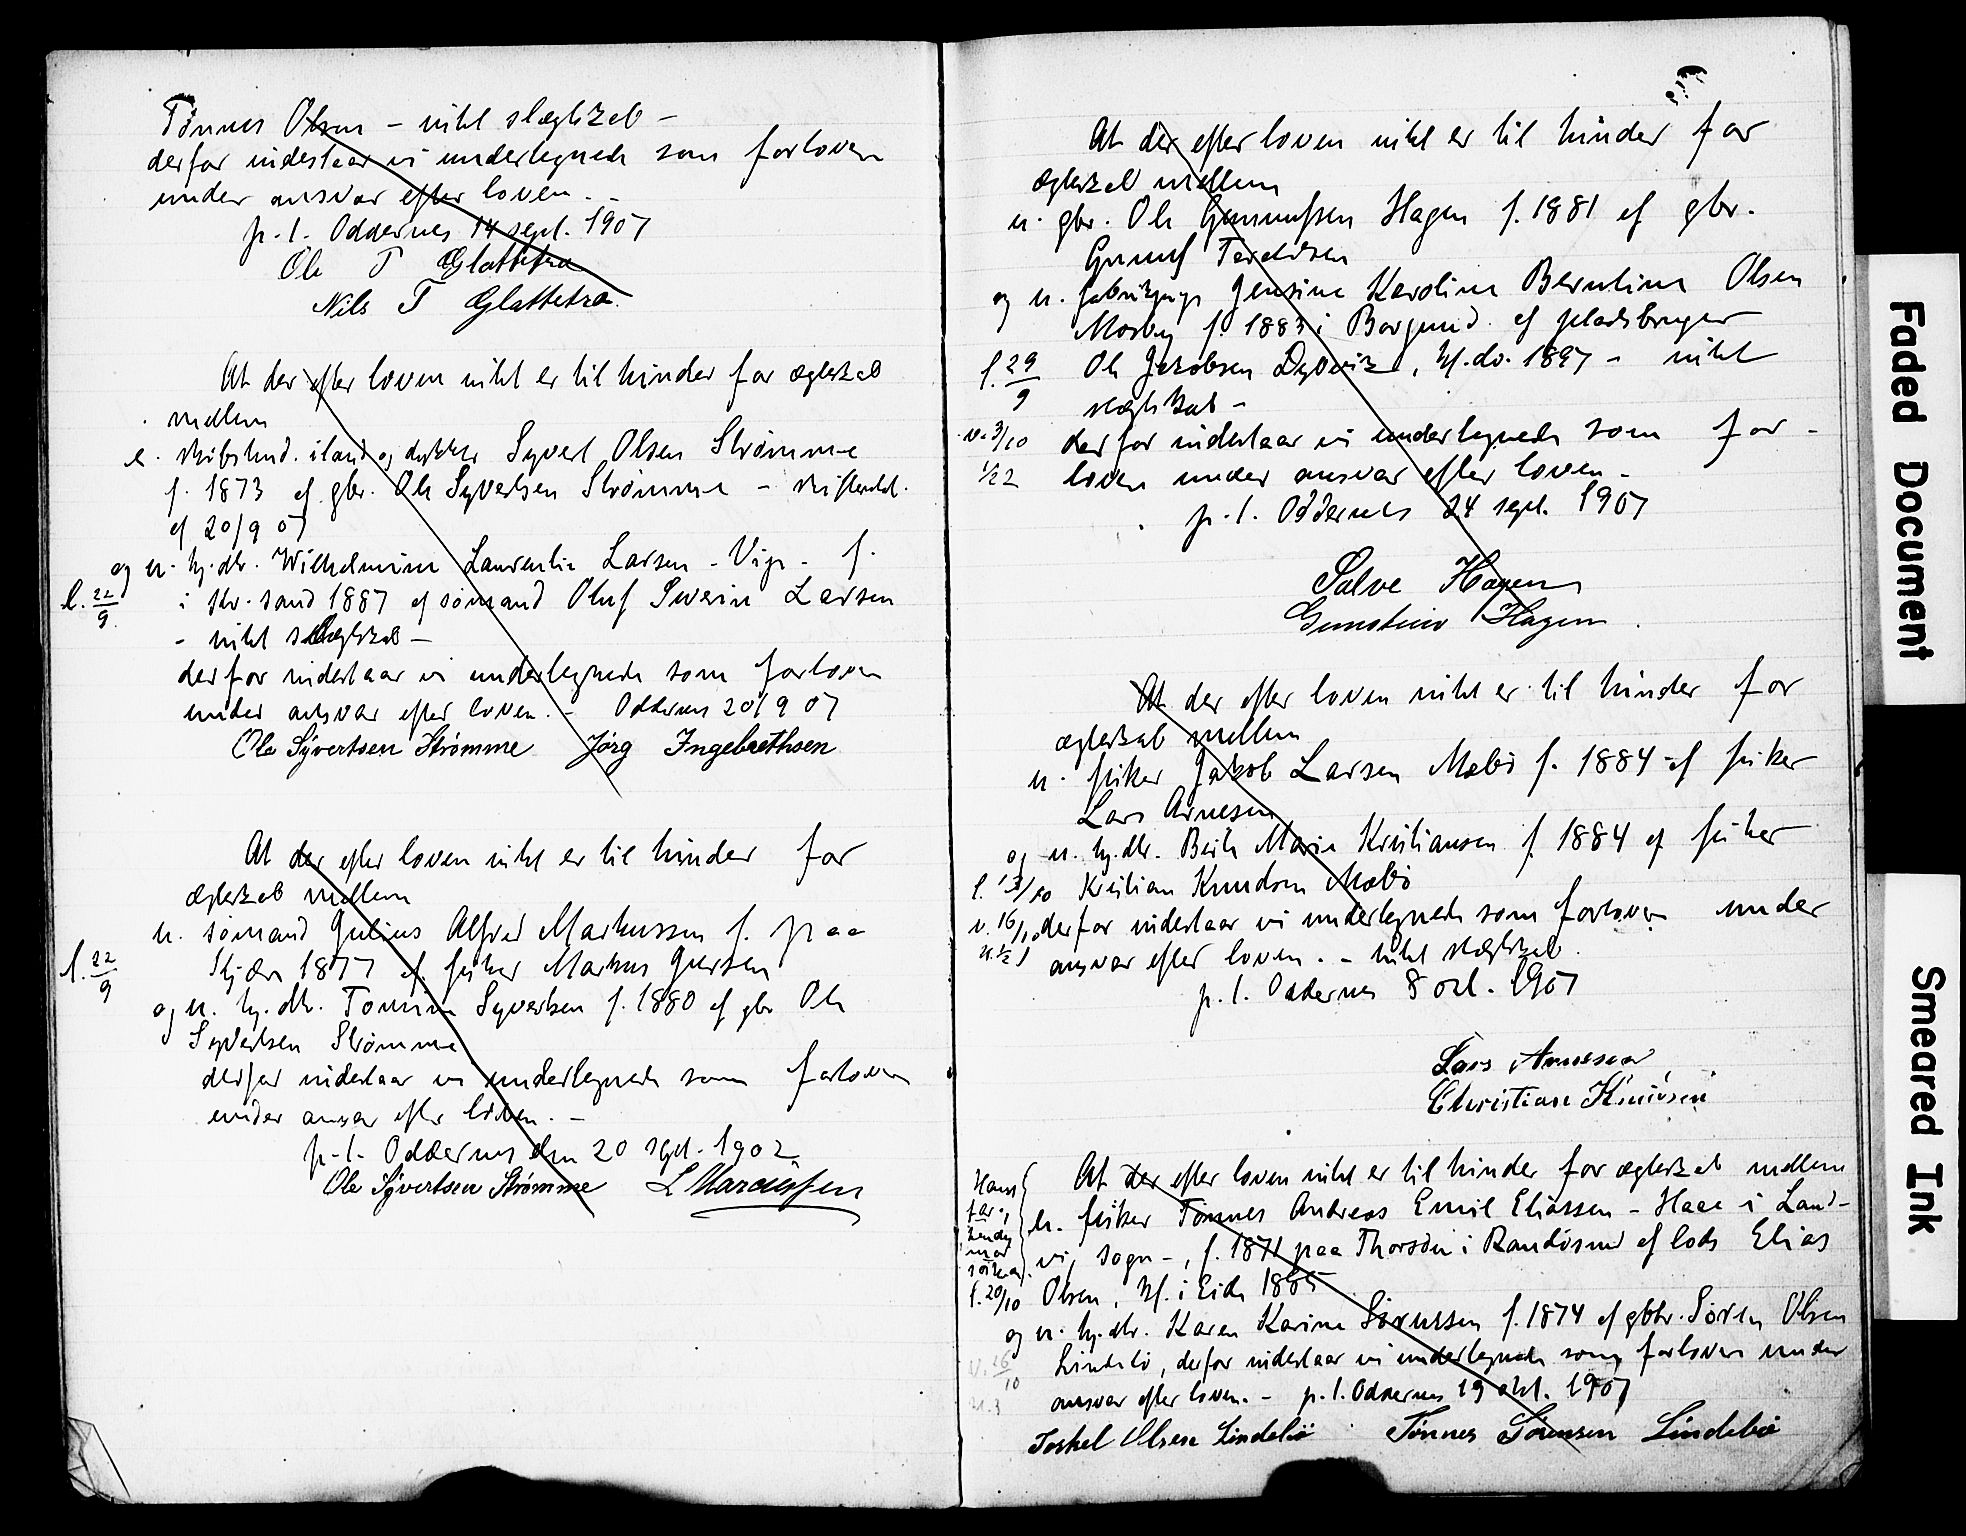 Tønnes Olsen – nikt slægtskab –
derfor indestaar vi undertegnede som forlovere
under ansvar efter loven. –
p. t. Oddernes 14 sept. 1907
Ole T Glattetra
Nils T Glattetra.
At der efter loven nikt er til hinder for ægteskab
mellem
e. skibstmd. iland og dykker Syvert Olsen Strømme
f. 1873 af gbr. Ole Syvertsen Strømme – skifteatt.
af 20/9 07
og u. hj.dtr. Wilhelmine Laurentie Larsen – Vige – f.
l. 22/9 i Kr.sand 1887 af sømand Oluf Swerin Larsen
– nikt slægtskab –
derfor indestaar vi undertegnede som forlovere
under ansvar efter loven. – Oddernes 20/9 07
Ole Syvertsen Strømme Jørg Ingebrethsen
At der efter loven nikt er til hinder for
ægteskab mellem
u. sømand Julius Alfred Markussen f. paa
l. 22/9 1877 af fisker Markus
og u. hj.dtr. Tomine Syvertsen f. 1880 af gbr Ole
Syvertsen Strømme
derfor indestaar vi undertegnede som forlovere
under ansvar efter loven. –
p. t. Oddernes den 20 sept. 1902
Ole Syvertsen Strømme L Marcussen
At der efter loven nikt er til hinder for
ægteskab mellem
u. gbr. Ole Gunnufsen Hagen f. 1881 af gbr.
Gunnuf
og u. Jensine Karoline Berntine Olsen
Mosby f. 1883 i Borgund af pladsbruger
l. 29/9 Ole Jakobsen Dybvik, kf. do. 1897 – nikt
slægtskab –
v. 3/10 derfor indestaar vi undertegnede som for-
1/22 lovere under ansvar efter loven –
p. t. Oddernes 24 sept. 1907
Salve Hagen
Gunstein Hagen.
At der efter loven nikt er til hinder for
ægteskab mellem
u. fisker Jakob Larsen Mæbø f. 1884 af fisker
Lars Arnesen
og u. hj.dtr. Berte Marie Kristiansen f. 1884 af fisker
l. 13/10 Kristian Knudsen Mæbø
v. 16/10 derfor indestaar vi undertegnede som forlovere under
ansvar efter loven. – nikt slægtskab.
p. t. Oddernes 8 okt. 1907
Lars Arnesen
Christian Knudsen
At der efter loven nikt er til hinder for ægteskab mellem
u. fisker Tønnes Andreas Emil Eliassen – Haae i Land-
vig sogn –, f. 1871 paa Thorsøen i Randøsund af lods Elias
l. 20/10 Olsen, kf. i Eide 1885
og u. hj.dtr. Karen Karine Sørensen f. 1874 af gbbr. Søren Olsen
v. 26/10 Lindebø, derfor indestaar vi undertegnede som forlovere under
ansvar efter loven. – p. t. Oddernes 19 okt. 1907
Torkel Olsen Lindebø Tønnes Sørensen Lindebø
Faded Document
Smeared Ink